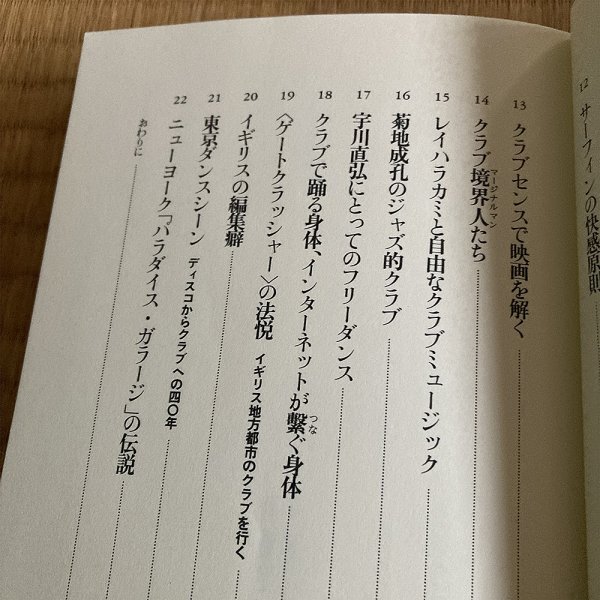 12 サーフィンの快感原則
13 クラブセンスで映画を解く
14 クラブ境界人たち
マージナルマン
15 レイハラカミと自由なクラブミュージック
16 菊地成孔のジャズ的クラブ
17 宇川直弘にとってのフリーダンス
18 クラブで踊る身体、インターネットが繫ぐ身体
つな
19 〈ゲートクラッシャー〉の法悦 イギリス地方都市のクラブを行く
20 イギリスの編集癖
21 東京ダンスシーン ディスコからクラブへの四〇年
22 ニューヨーク「パラダイス・ガラージ」の伝説
おわりに